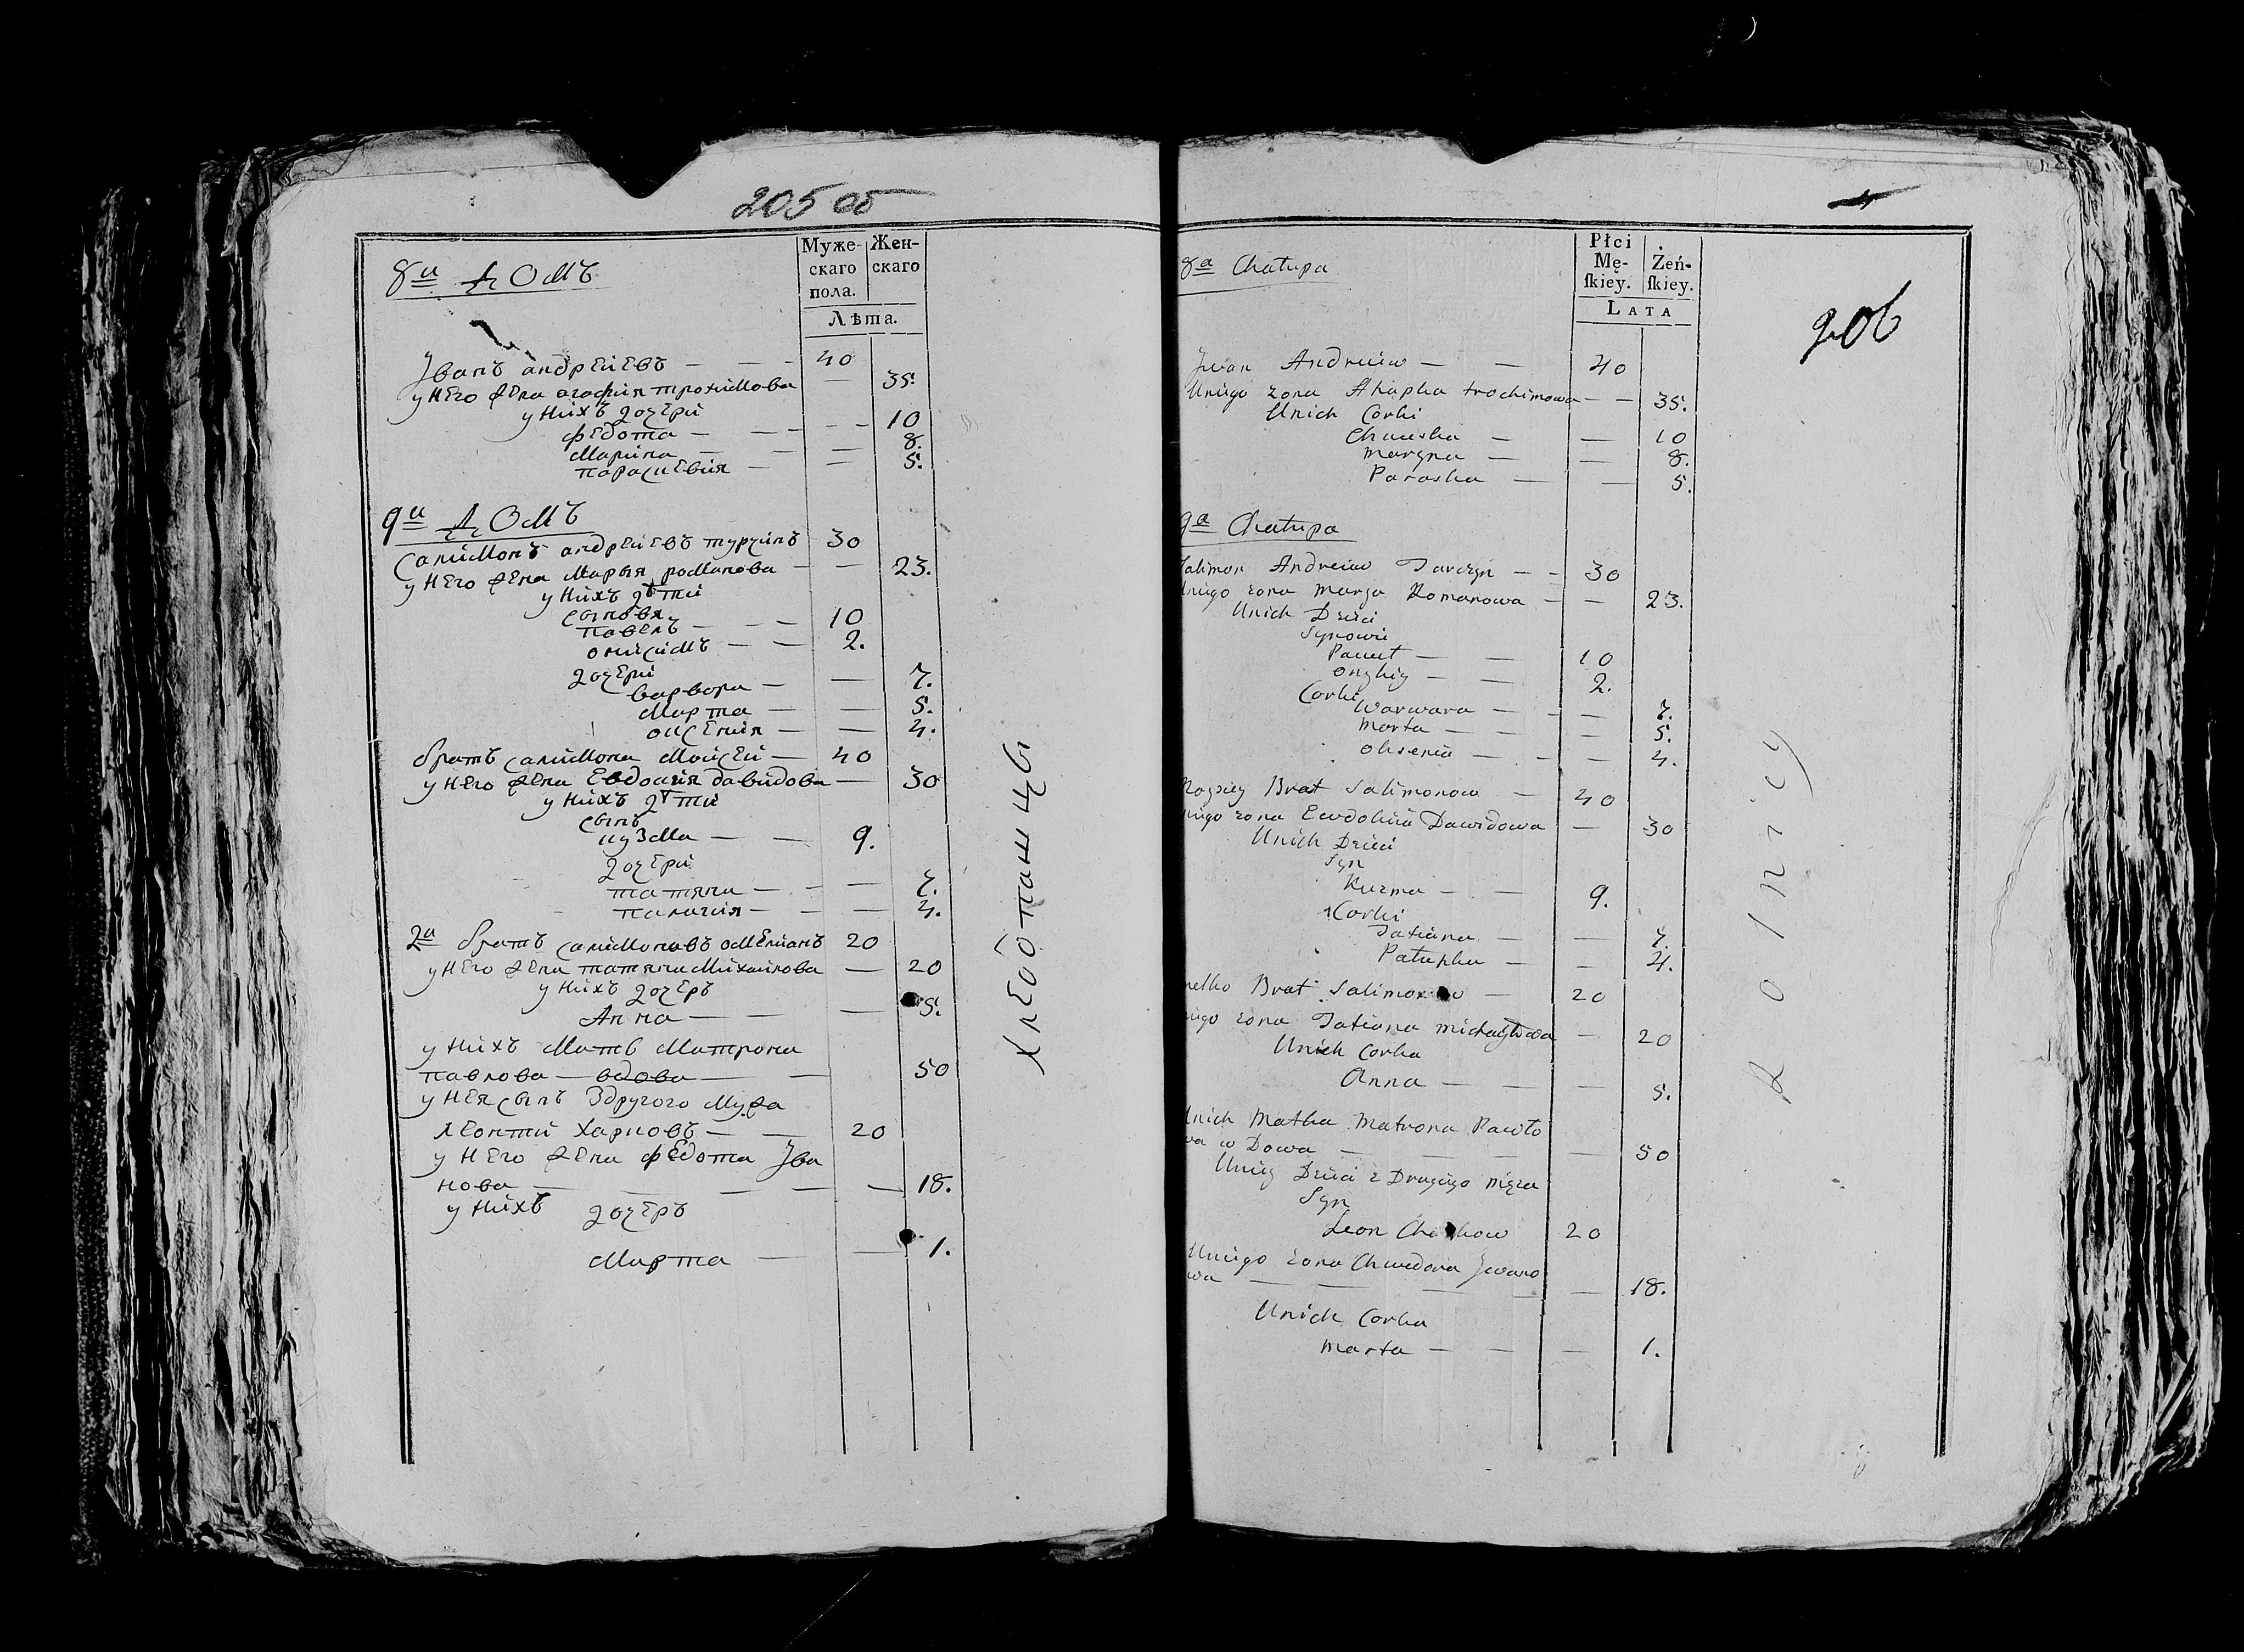 205 об
8й ДОМЪ
Муже-скаго пола.
Жен-скаго
Лѣта.
Јванъ андреиевъ — — — 40
у него жена агафия трохимова — 35.
у нихъ дочери
федота — — — 10
Марина — — — 8.
параскевия — — 5.
9й ДОМЪ
Салимонъ андреиевъ турчинъ 30
у него жена Марья романова — — 23.
у нихъ дѣти
сыновя
павелъ — — — 10
онисимъ — — 2.
дочери
варвора — — 7.
Марта — — 5.
оксения — — 4.
братъ салимона Моисеи — 40
у него жена Евдокия давидова — 30
у нихъ дѣти
сынъ
кузма — — 9.
дочери
татяна — — — 7.
палагия — — — 4.
2й братъ салимоновъ омелианъ 20
у него жена татяна Михаилова — 20
у нихъ дочеръ
Анна — — — 5.
у нихъ Мать Матрона
павлова — вдова — — 50
у нея сынъ здругого Мужа
леонтий харковъ — — 20
у него жена федота Јва
нова — — — — — 18.
у нихъ дочеръ
Марта — — 1.
хлебопашцы
8a Chałupa
Płci Mę-ſkiey.
Żeń-ſkiey.
LATA
206
Jwan Andreiew — — 40
Uniego zona Ahapka trochimowa — — 35.
Unich Corki
— — 10
Maryna — — 8.
Paraska — — 5.
9a Chałupa
Salimon Andreiew Turczyn — — 30
Uniego zona Marya Romanowa — — 23.
Unich Dzieci
Synowie
Paweł — — 10
— — 2.
Corki
Warwara — — — 7.
Marta — — — 5.
Oksenia — — — 4.
Moysiey Brat Salimonow — 40
niego zona Ewdokiia Dawidowa — 30
Unich Dzieci
Syn
Kuzma — — 9.
Corki
Tatiana — — 7.
Pałahka — — 4.
melko Brat Salimonow — 20
niego zona Tatiana Michayłowa — 20
Unich Corka
Anna — — — 5.
Unich Matka Matrona Pawło
wa w Dowa — — — — 50
Uniey Dzieci z Drugiego męza
Syn
Leon Charkow 20
Uniego zona Chwedora Jwano
wa — — — — — 18.
Unich Corka
Marta — — — 1.
Rolnicy